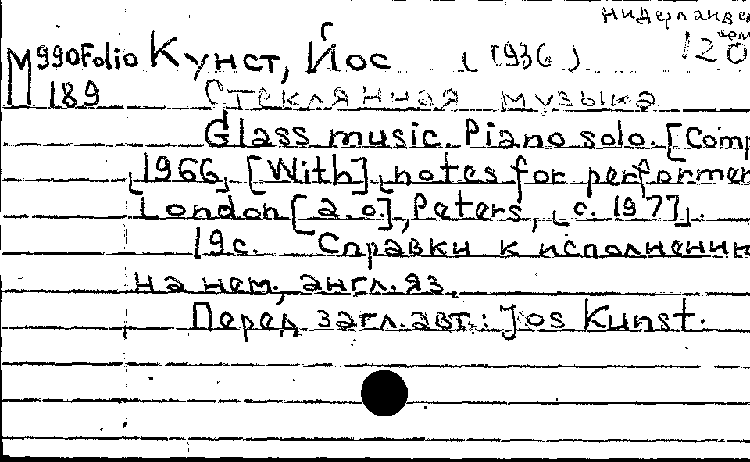 нидерландс
M 990Folio Кунст, Йос [1936] 120
189 Стеклянная музыка
Glass music. Piano solo. [Comp
1966]. [With] notes for performer
London [a.o], Peters, [c. 1977].
19 с. Справки к исполнению
на нем., англ. яз.
Перед загл. авт.: Jos Kunst.